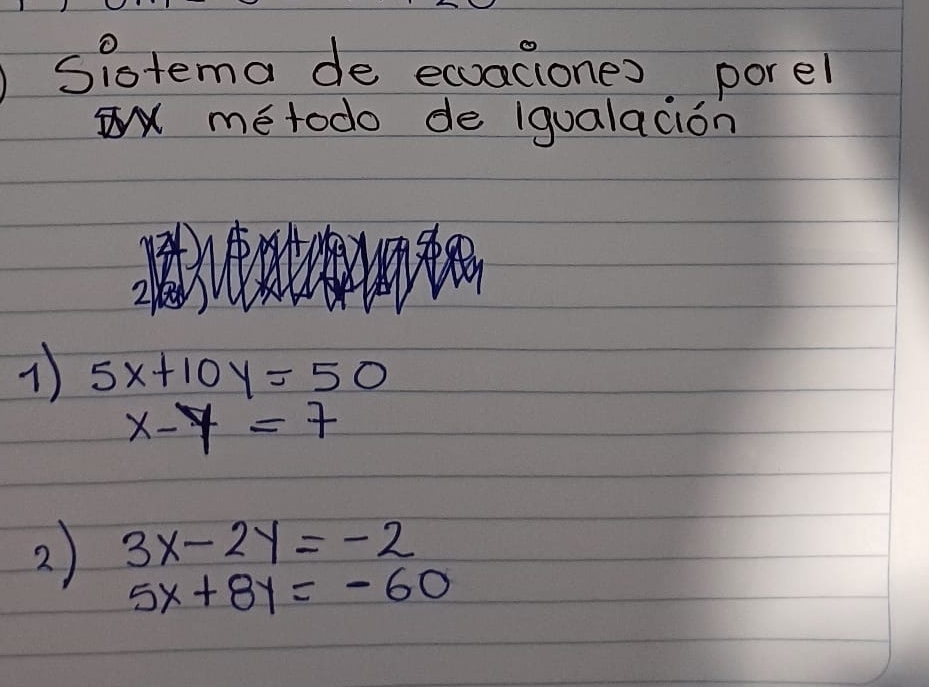 Sistema de ecuaciones por el
método de Igualación
1) 5x+10y=50
x-y=7
2) 3x-2y=-2
5x+8y=-60